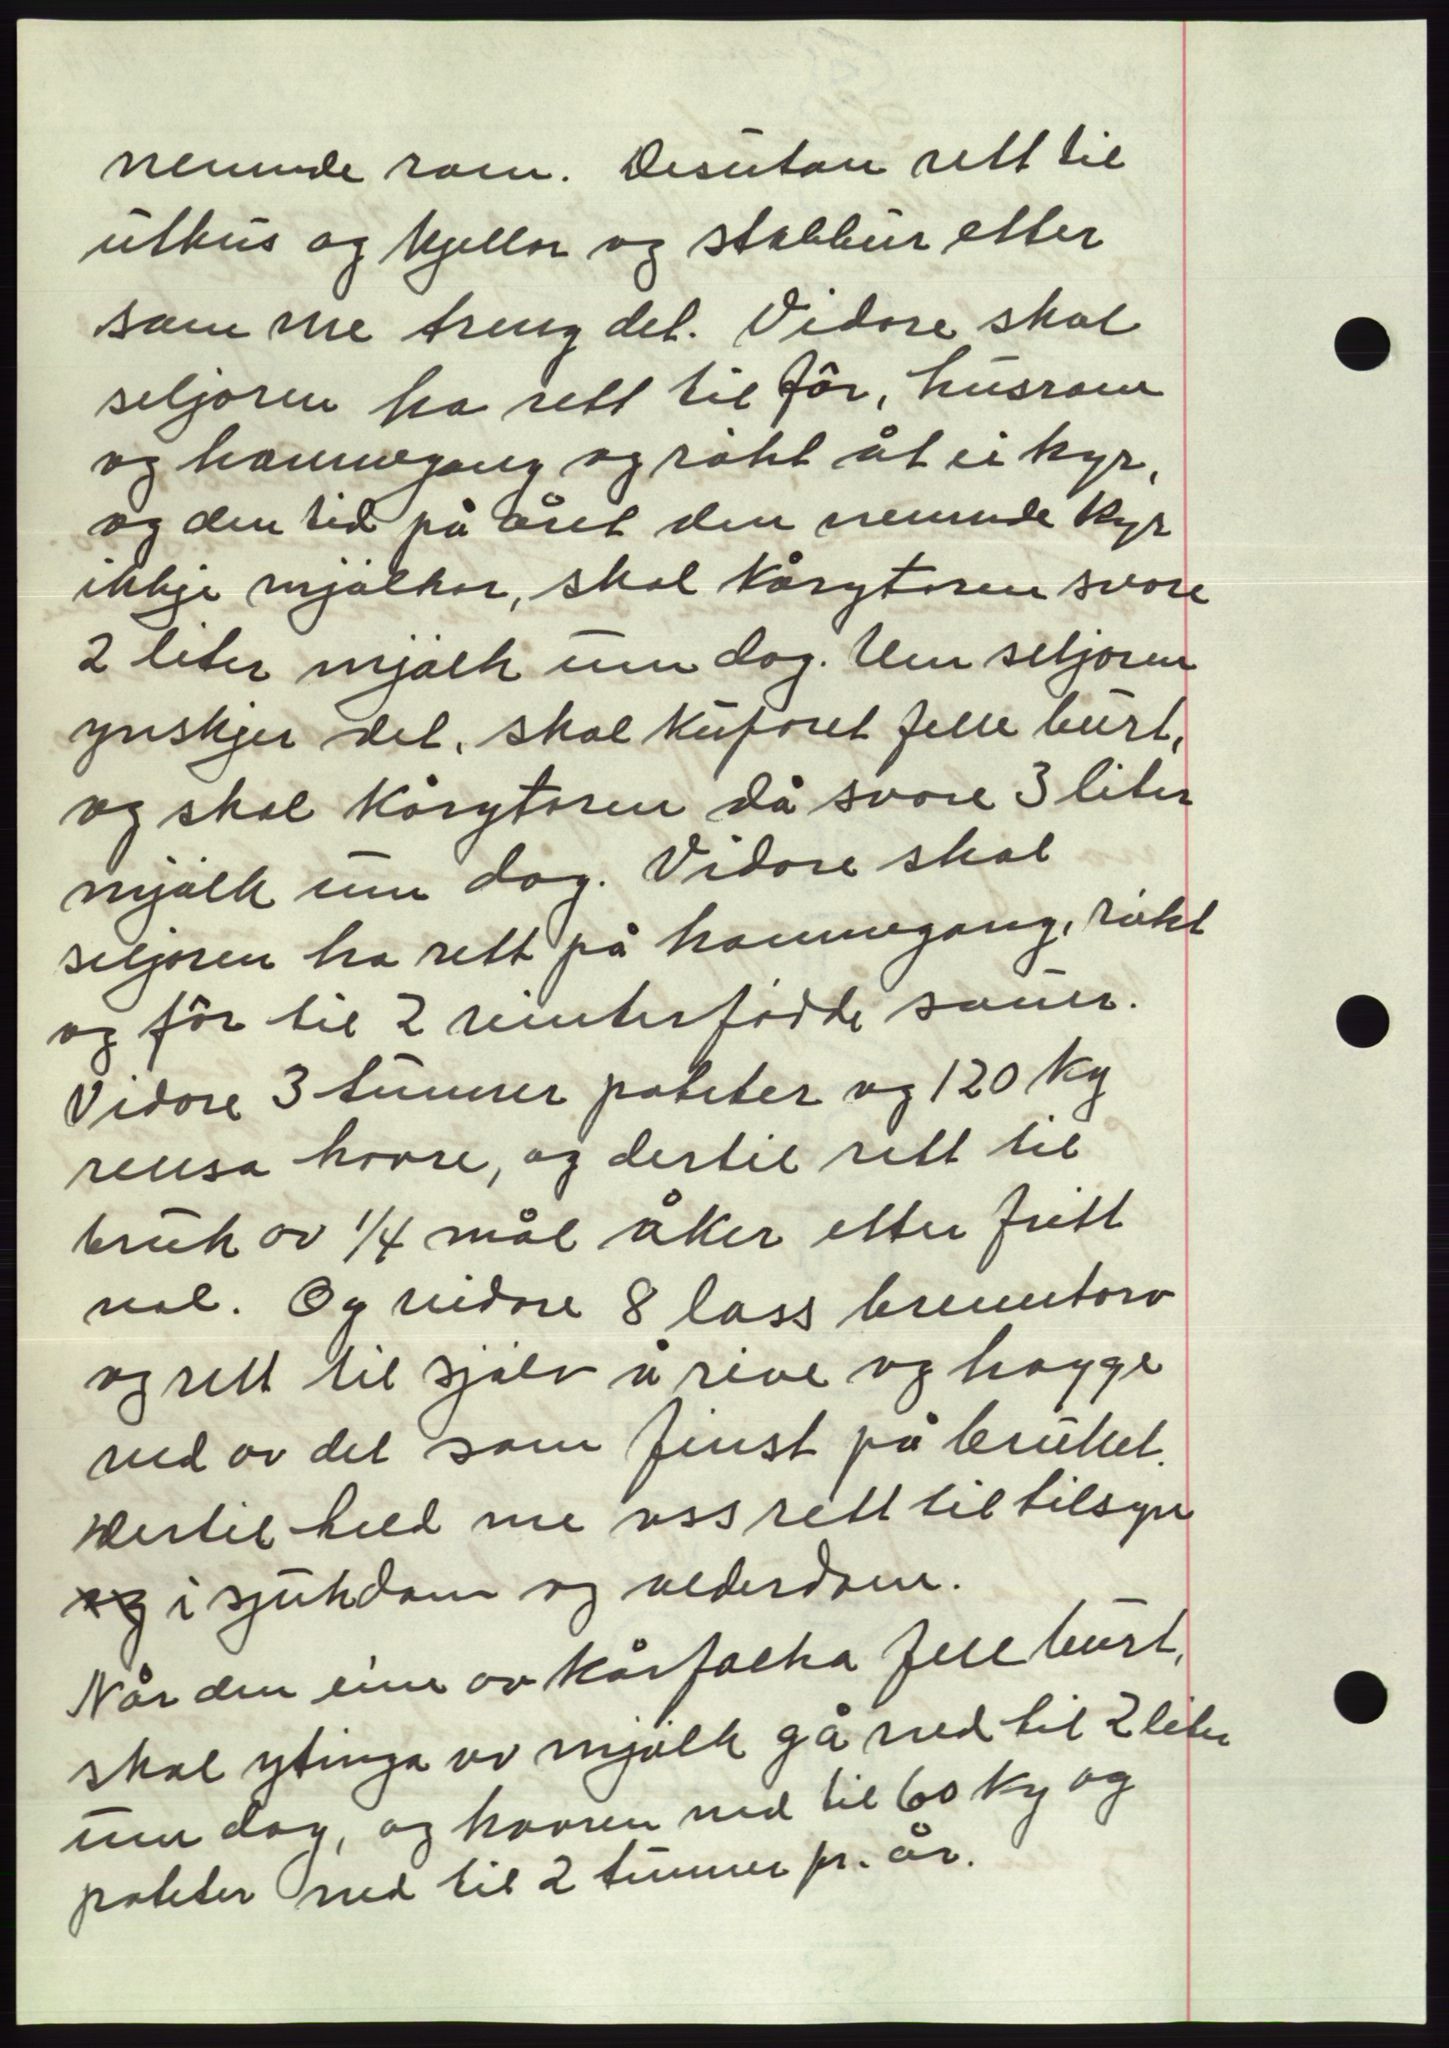 nemnde rom. Desutan rett til
uthus og kjellar og stabbur etter
som me treng det. Vidare skal
seljaren ha rett til fôr, husrom
og hamnegang og røkt åt ei kyr,
og den tid på året den nemnde kyr
ikkje mjølkar, skal kårytaren svare
2 liter mjølk um dag. Um seljaren
ynskjer det, skal kuforet falle burt,
og skal kårytaren då svare 3 liter
mjølk um dag. Vidare skal
seljaren ha rett på hamnegang, røkt
og fôr til 2 vinterfødde sauer.
Vidare 3 tunner poteter og 120 kg
rensa havre, og dertil rett til
bruk av 1/4 mål åker etter fritt
val. Og vidare 8 lass brenntorv
og rett til sjølv å rive og hogge
ved av det som finst på bruket.
Dertil held me oss rett til tilsyn
og i sjukdom og alderdom.
Når den eine av kårfolka fell burt,
skal ytinga av mjølk gå ned til 2 liter
um dag, og havren ned til 60 kg og
poteter ned til 2 tunner pr. år.